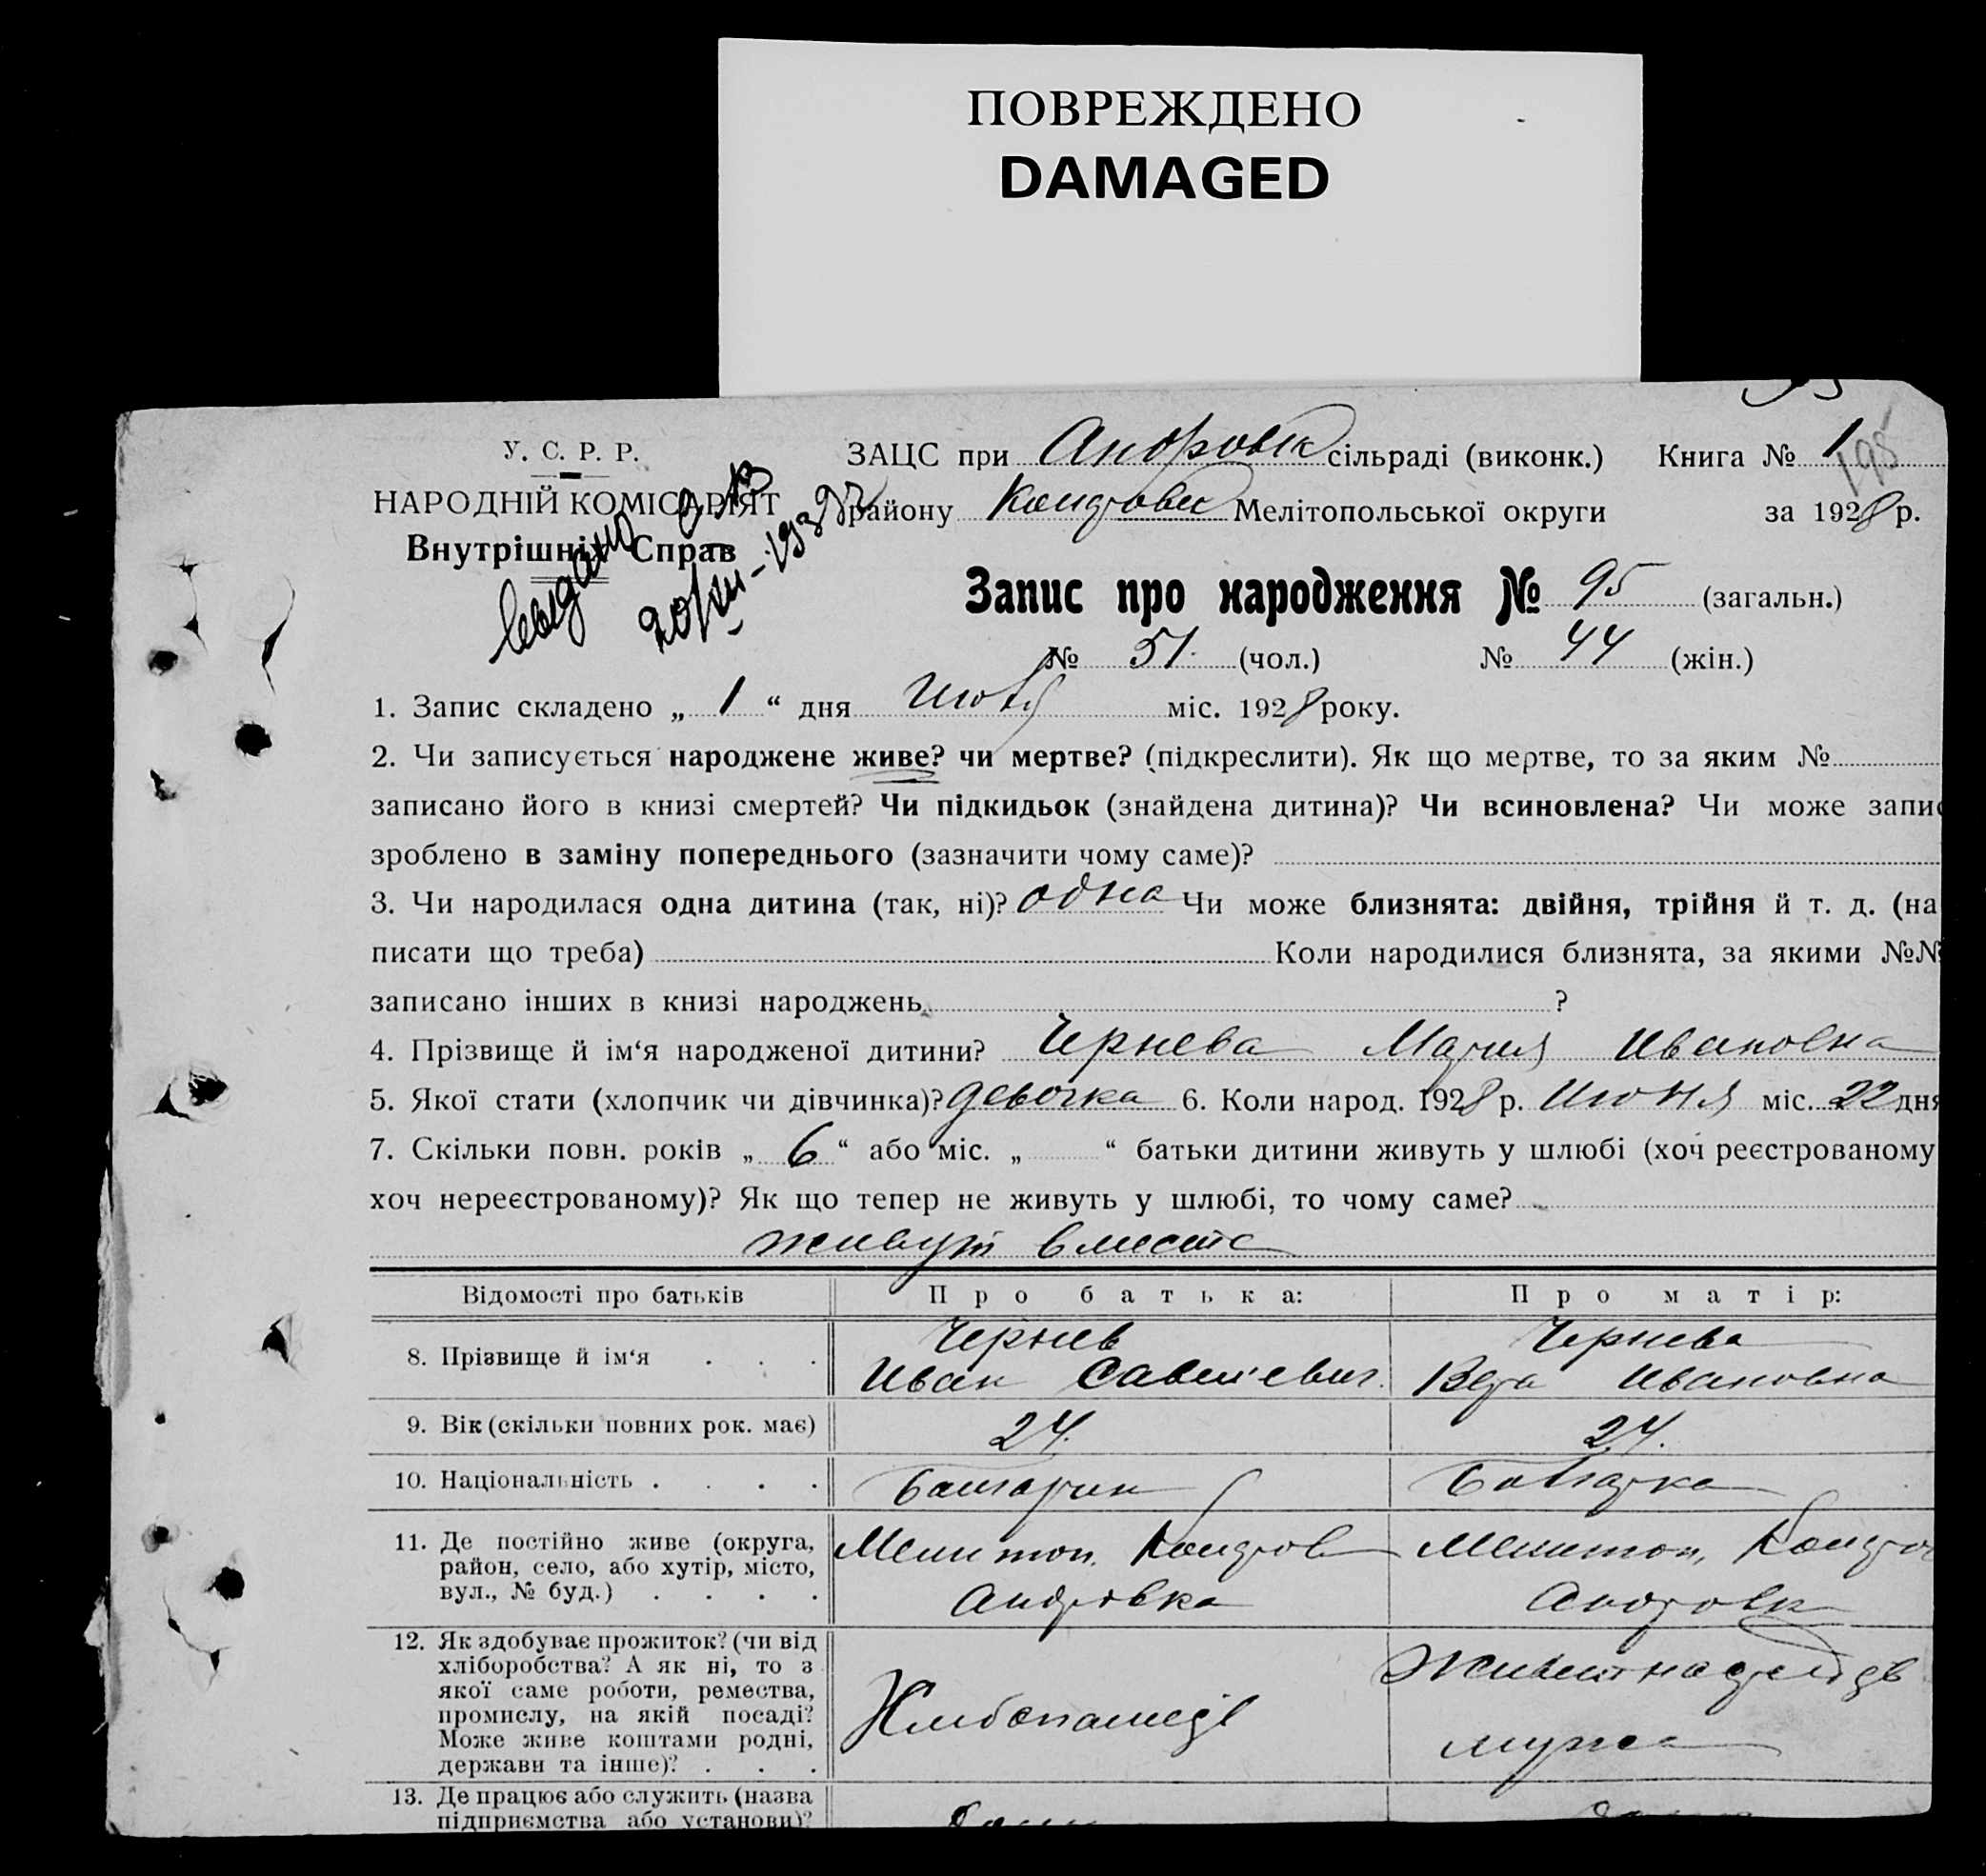 ПОВРЕЖДЕНО
DAMAGED
У. С. Р. Р.
НАРОДНІЙ КОМІСАРІЯТ
Внутрішніх Справ
ЗАЦС при Андровк сільраді (виконк.) Книга № 1
195
району Мелітопольської округи за 1928 р.
Запис про народження № 95 (загальн.)
№ 51. (чол.) № 44 (жін.)
1. Запис складено „ 1 “ дня Июля міс. 1928 року.
2. Чи записується народжене живе? чи мертве? (підкреслити). Як що мертве, то за яким №
записано його в книзі смертей? Чи підкидьок (знайдена дитина)? Чи всиновлена? Чи може запис
зроблено в заміну попереднього (зазначити чому саме)?
3. Чи народилася одна дитина (так, ні)? одна Чи може близнята: двійня, трійня й т. д. (на
писати що треба) Коли народилися близнята, за якими №№
записано інших в книзі народжень ?
4. Прізвище й ім‘я народженої дитини? Чернева Мария Ивановна
5. Якої стати (хлопчик чи дівчинка)? девочка 6. Коли народ. 1928 р. Июня міс. 22 дня
7. Скільки повн. років „ 6 “ або міс. „ “ батьки дитини живуть у шлюбі (хоч реєстрованому
хоч нереєстрованому)? Як що тепер не живуть у шлюбі, то чому саме?
живут вместе
Відомості про батьків Про батька: Про матір:
8. Прізвище й ім‘я . . .
Чернев
Иван Савелиевич.
Чернева
Вера Ивановна
9. Вік (скільки повних рок. має) 24. 24.
10. Національність . . . . болгарин болгарка
11. Де постійно живе (округа,
район, село, або хутір, місто,
вул., № буд.) . . . .
Мелитоп.
Андровка
Мелитоп.
Андровк
12. Як здобуває прожиток? (чи від
хліборобства? А як ні, то з
якої саме роботи, ремества,
промислу, на якій посаді?
Може живе коштами родні,
держави та інше)? . . .
Хлебопашец
мужа
13. Де працює або служить (назва
підприємства або установи)?